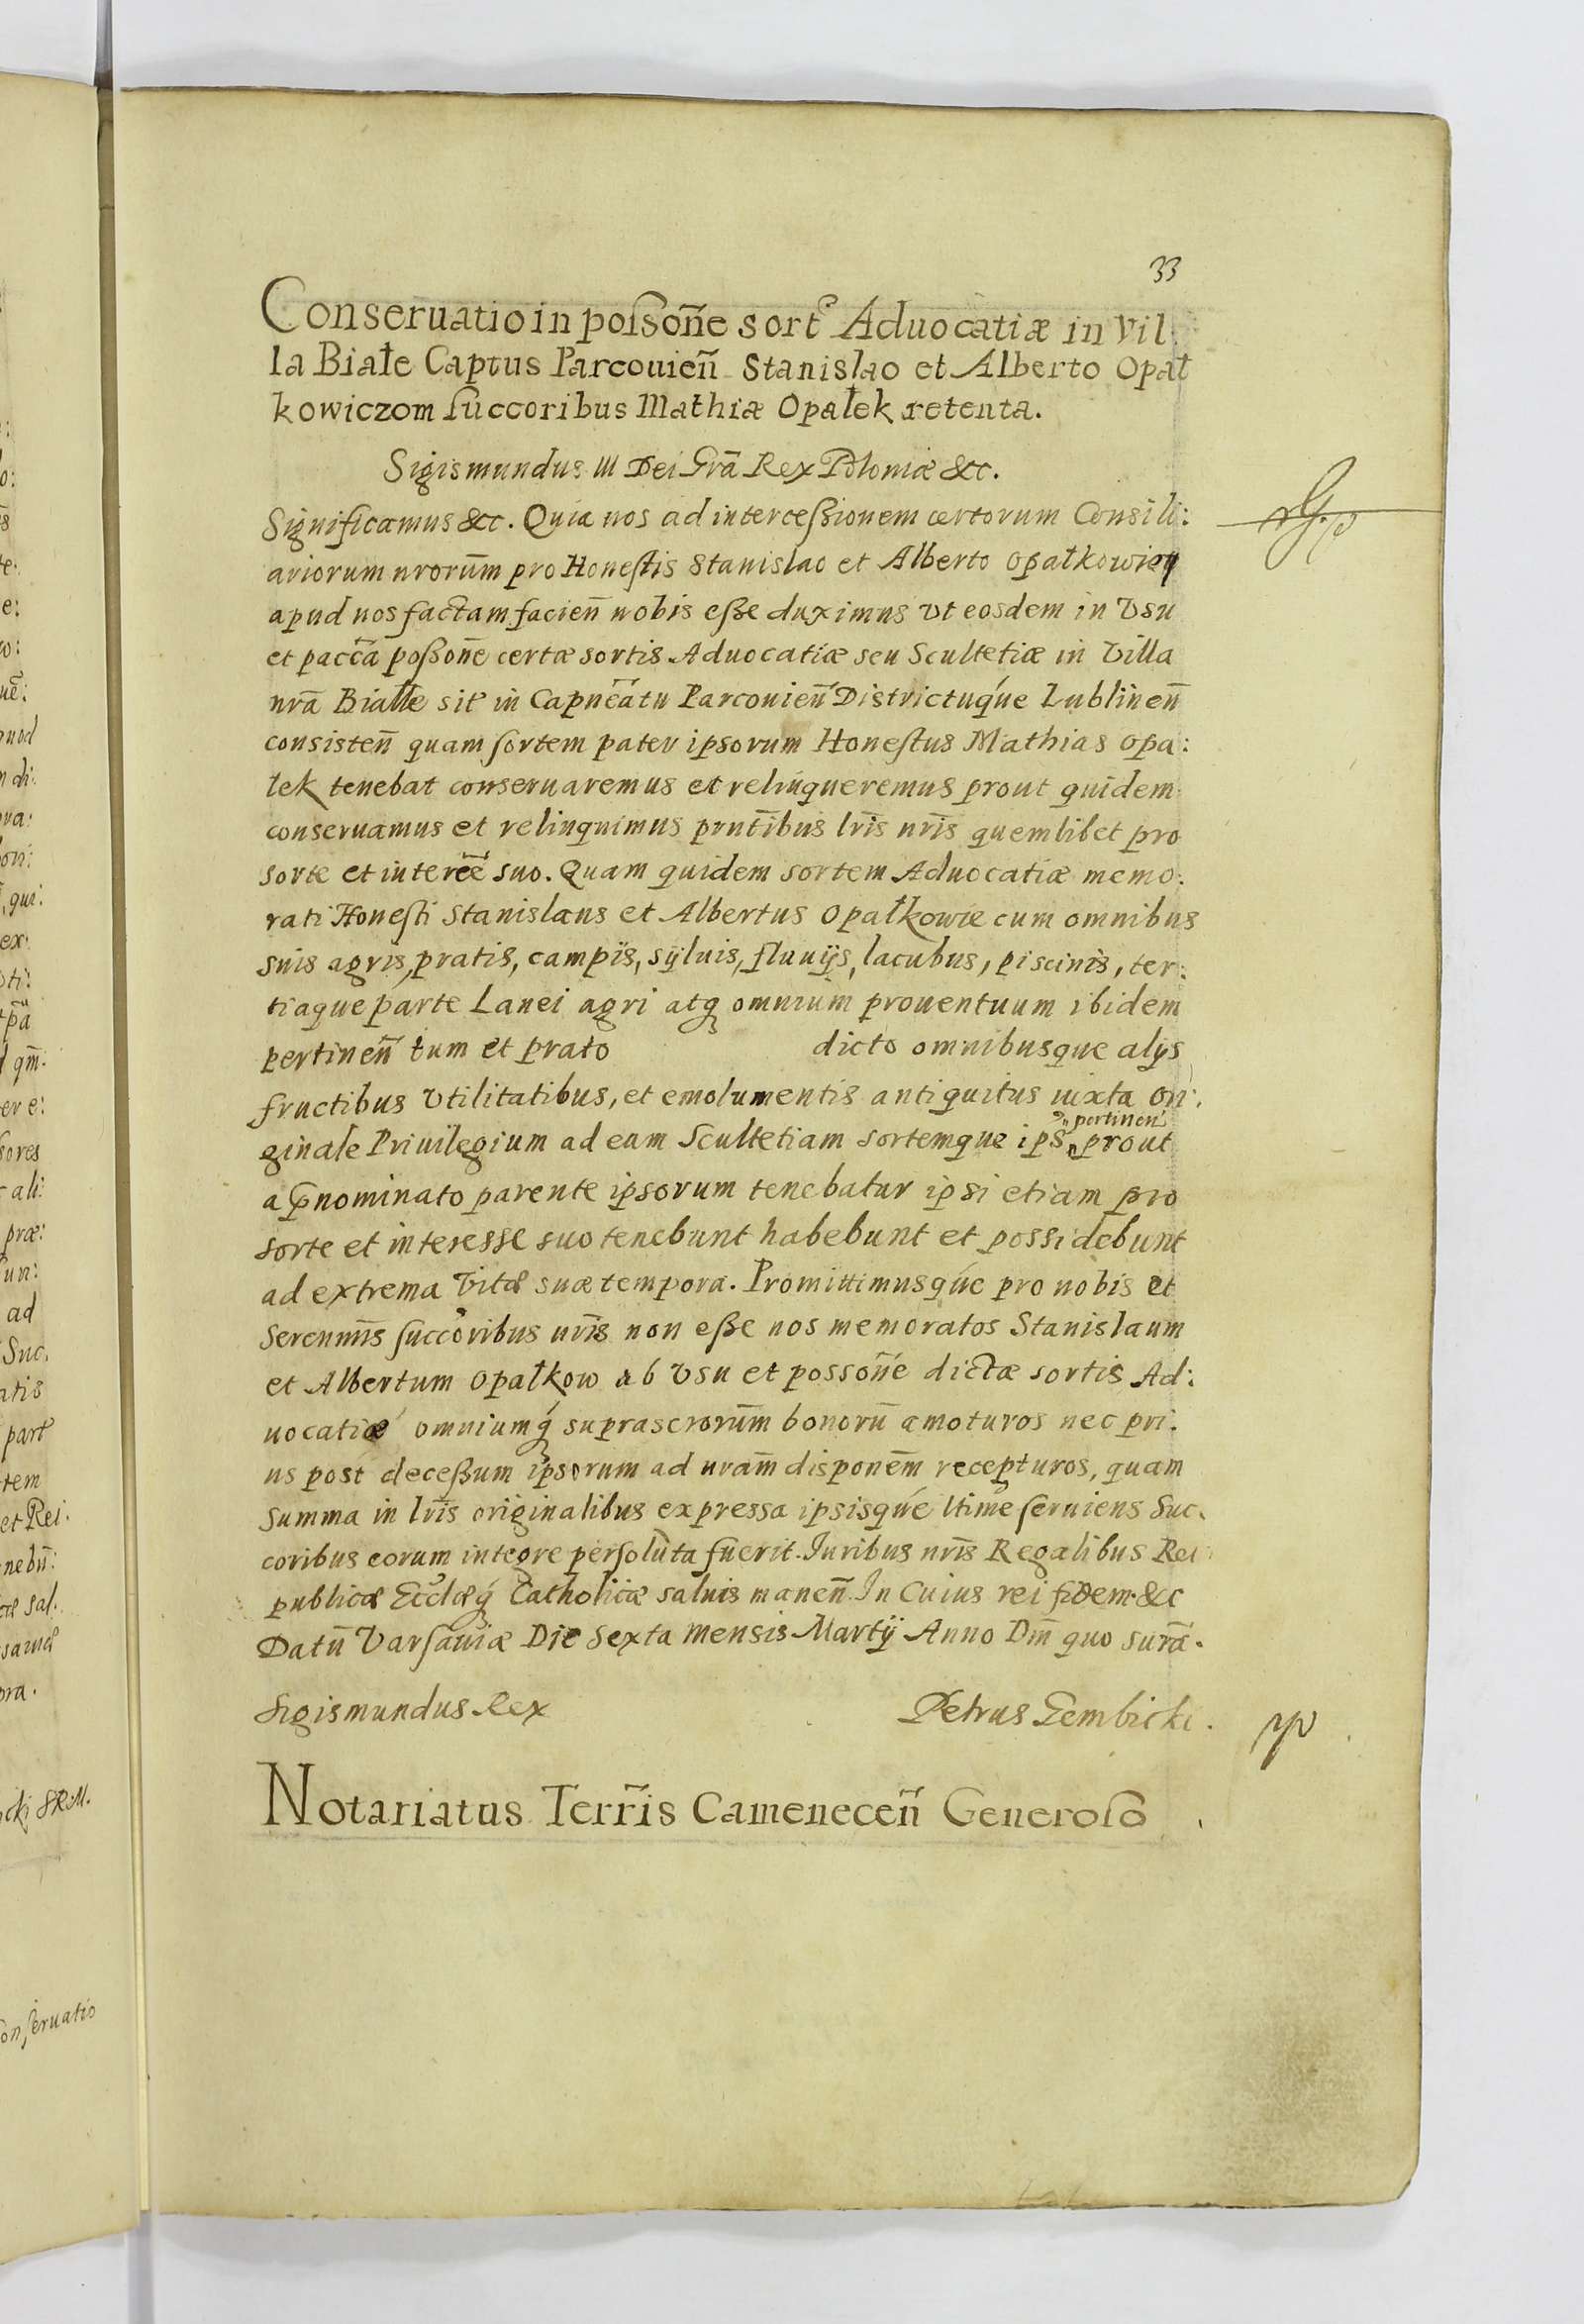 33
Conseruatio in poſsone͂ sort Aduocatiæ in Vil
la Białe Captus Parcouien͂ Stanislao et Alberto Opał
kowiczom ſuccoribus Mathiæ Opałek retenta.
Sigismundus III Dei Gra͂ Rex Poloniæ &c.
Significamus &c. Quia nos ad interceßionem certorum Consili:
ariorum nroru͂m pro Honeſtis Stanislao et Alberto Opałkowicz
apud nos factam facien͂ nobis eße duximus vt eosdem in Vsu
et pacca͂ poßone͂ certæ sortis Aduocatiæ seu Scultetiæ in Villa
nra͂ Białłe sit in Capnea͂tu Parcouien͂ Districtuq́ue Lublinen͂
consisten͂ quam ſortem pater ipsorum Honeſtus Mathias Opa:
łek tenebat conseruaremus et relinqueremus prout quidem
conseruamus et relinquimus prnti͂bus lri͂s nri͂s quemlibet pro
sorte et intere͂e suo. Quam quidem sortem Aduocatiæ memo:
rati Honeſti Stanislaus et Albertus Opałkowie cum omnibus
suis agris, pratis, campis, syluis, fluuijs, lacubus, piscinis, ter:
tiaque parte Lanei agri atq omnium prouentuum ibidem
pertinen͂ tum et prato dicto omnibusque alijs
fructibus Vtilitatibus, et emolumentis antiquitus iuxta Ori:
pertinen͂
ginale Priuilegium ad eam Scultetiam sortemque ips prout
a p͂nominato parente ipsorum tenebatur ipsi etiam pro
sorte et interesse suo tenebunt habebunt et possidebunt
ad extrema Vitæ suæ tempora. Promittimusq́ue pro nobis et
Serenmi͂s ſuccoribus nri͂s non eße nos memoratos Stanislaum
et Albertum Opałkow ab Vsu et possone͂ dictæ sortis Ad:
uocatiæ omniumq́ suprascroru͂m bonoru͂ amoturos nec pri:
us post deceßum ipsorum ad nra͂m dispone͂m recepturos, quam
summa in lri͂s originalibus expressa ipsisq́ue ltime ſeruiens Suc:
coribus eorum integre perſoluta fuerit. Iuribus nri͂s Regalibus Rei
publicæ Eccl͂æq́ Catholicæ saluis manen͂. In Cuius rei fidem &c
Datu͂ Varſauiæ Die Sexta Mensis Martij Anno Dni͂ quo sura͂.
Sigismundus Rex Petrus Gembicki.
Notariatus Terri͂s Camenecen͂ Generoſo